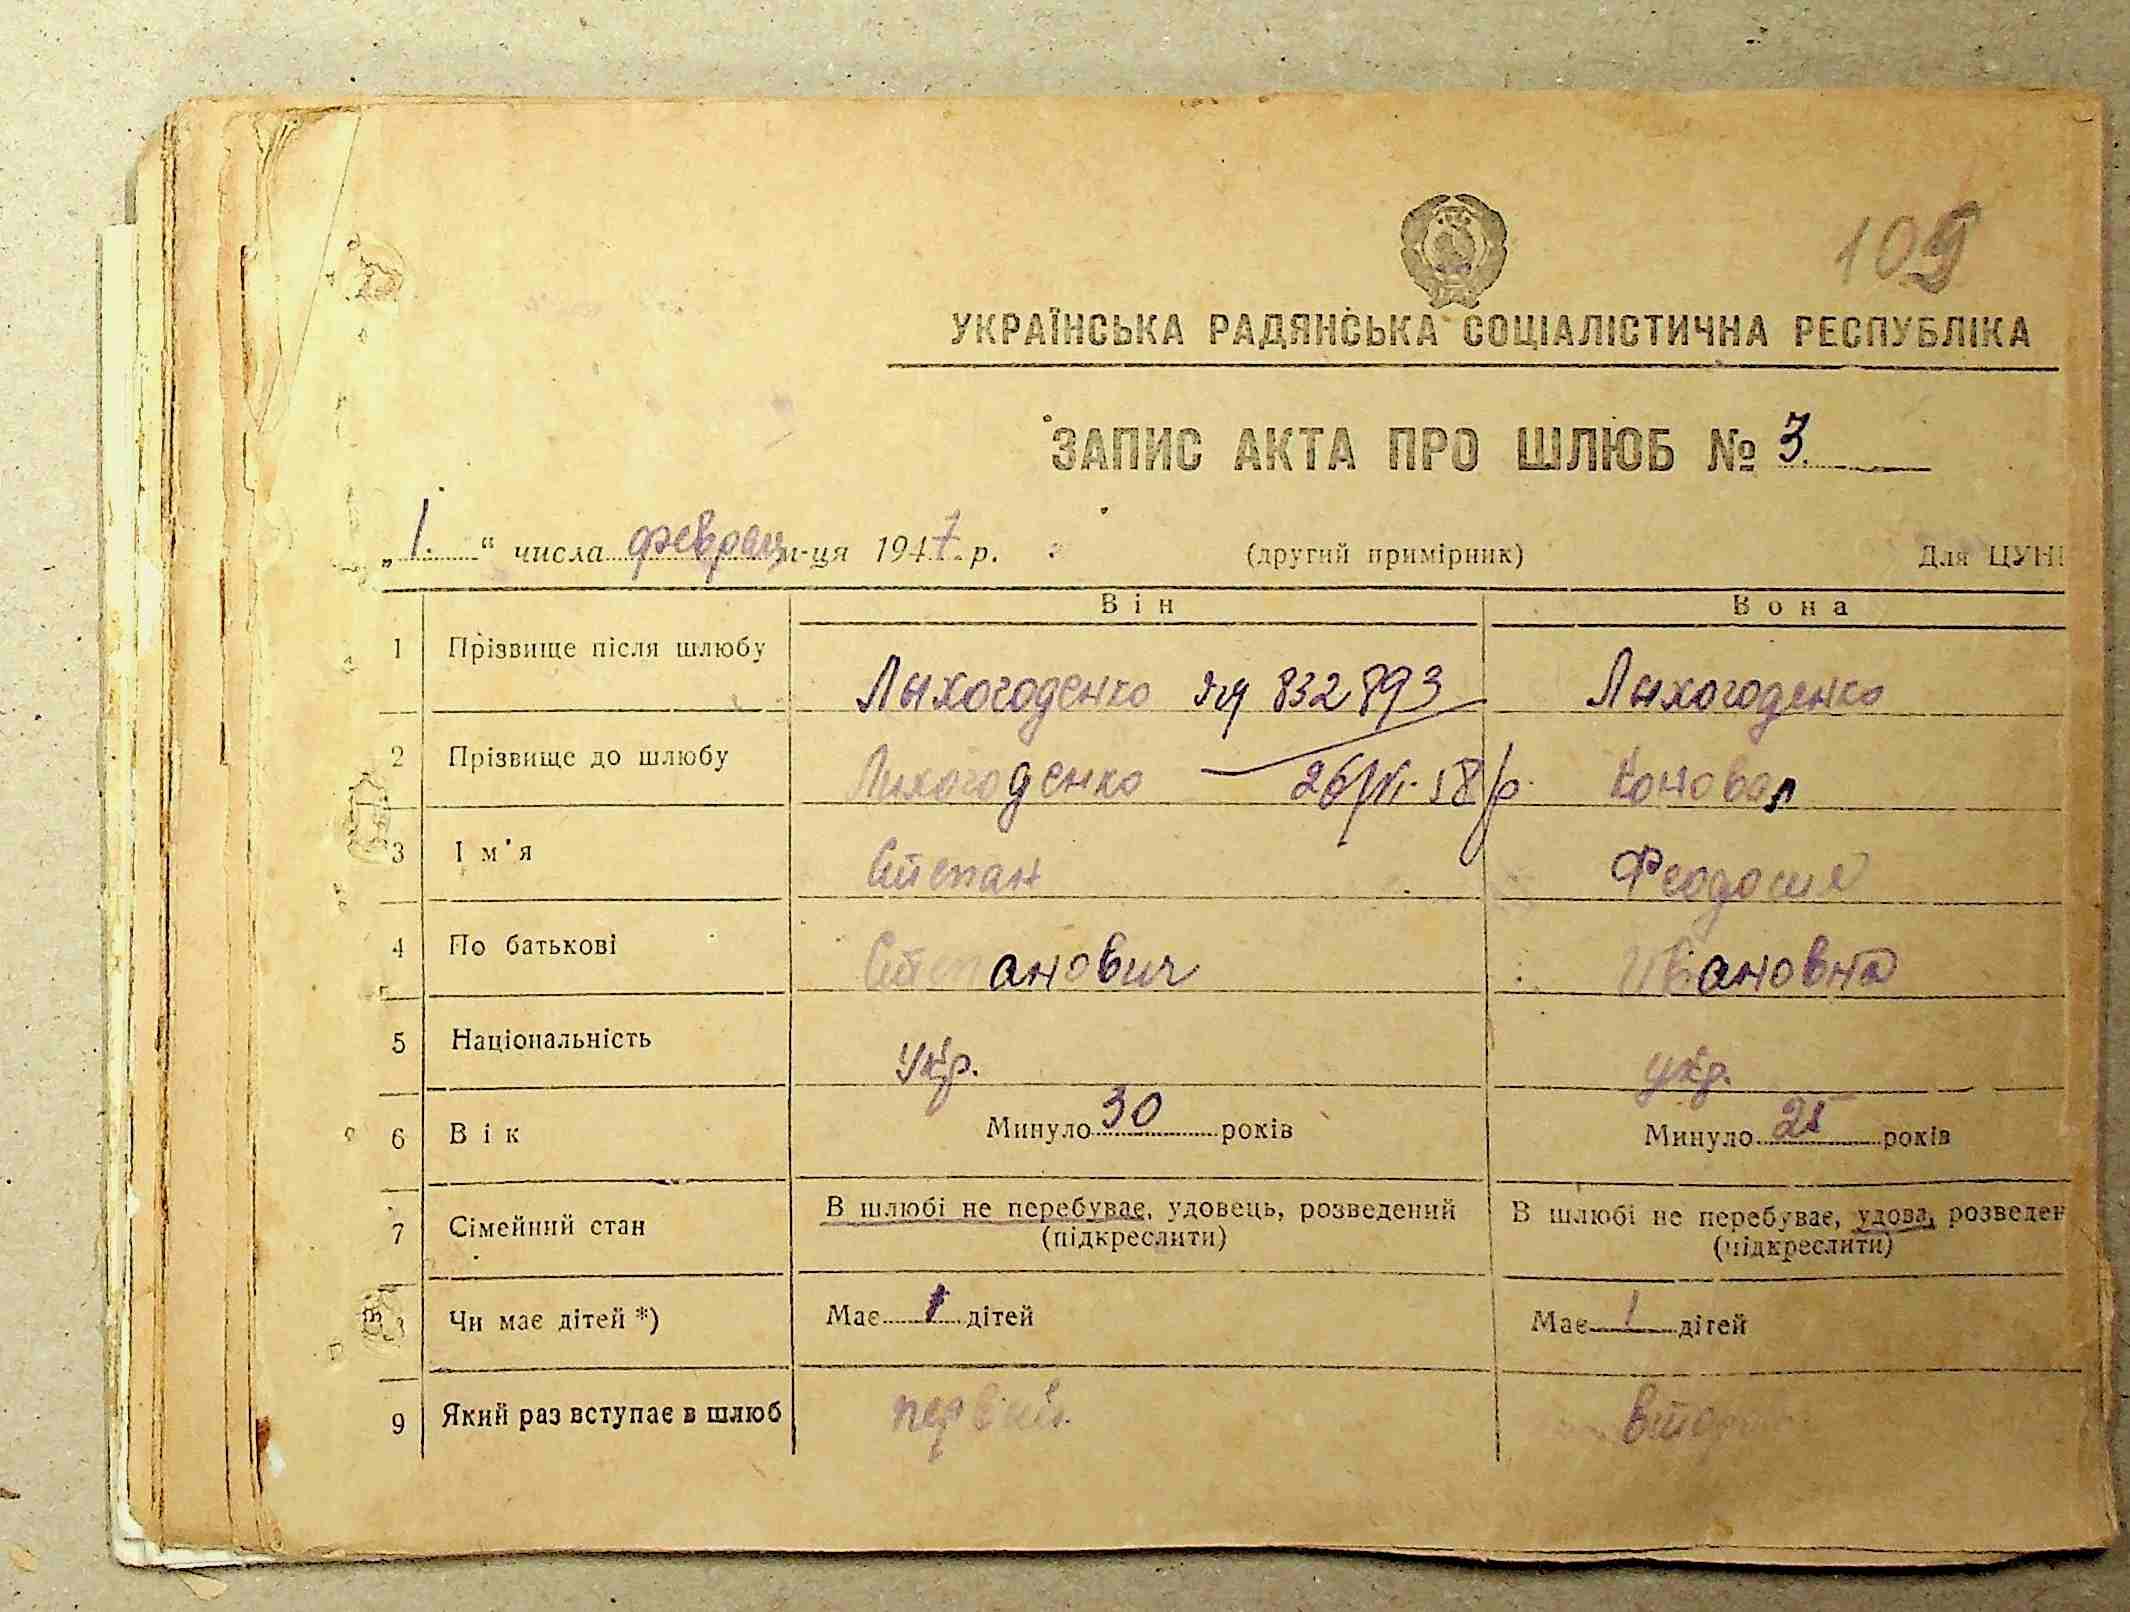 109
УКРАЇНСЬКА РАДЯНСЬКА СОЦІАЛІСТИЧНА РЕСПУБЛІКА
ЗАПИС АКТА ПРО ШЛЮБ № 3.
„1.“ числа февраля м-ця 1947 р. (другий примірник) Для ЦУН
Він Вона
1 Прізвище після шлюбу Лыхогоденко 832893 Лыхогоденко
2 Прізвище до шлюбу Лихогоденко 26/VI-58 р. Коновал
3 Ім'я Степан Феодосия
4 По батькові Степанович Ивановна
5 Національність Укр. укр.
6 Вік Минуло 30 років Минуло 25 років
7 Сімейний стан В шлюбі не перебуває, удовець, розведений В шлюбі не перебуває, удова, розведен
(підкреслити) (підкреслити)
Чи має дітей *) Має 1 дітей Має 1 дітей
9 Який раз вступає в шлюб первый